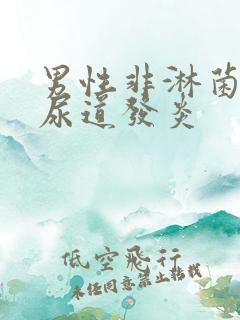 男性非淋菌
尿道發炎
低空飛行
未任同意禁止轉載